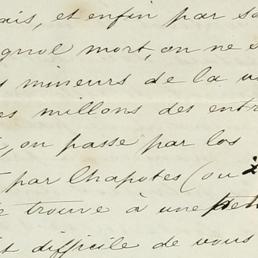 ais, et enfin par so
agnol mort, on ne s
s mineurs de la v
es millons des entr
, on passe par los
par Chapotes (ou
e trouve à une
t difficile de vous